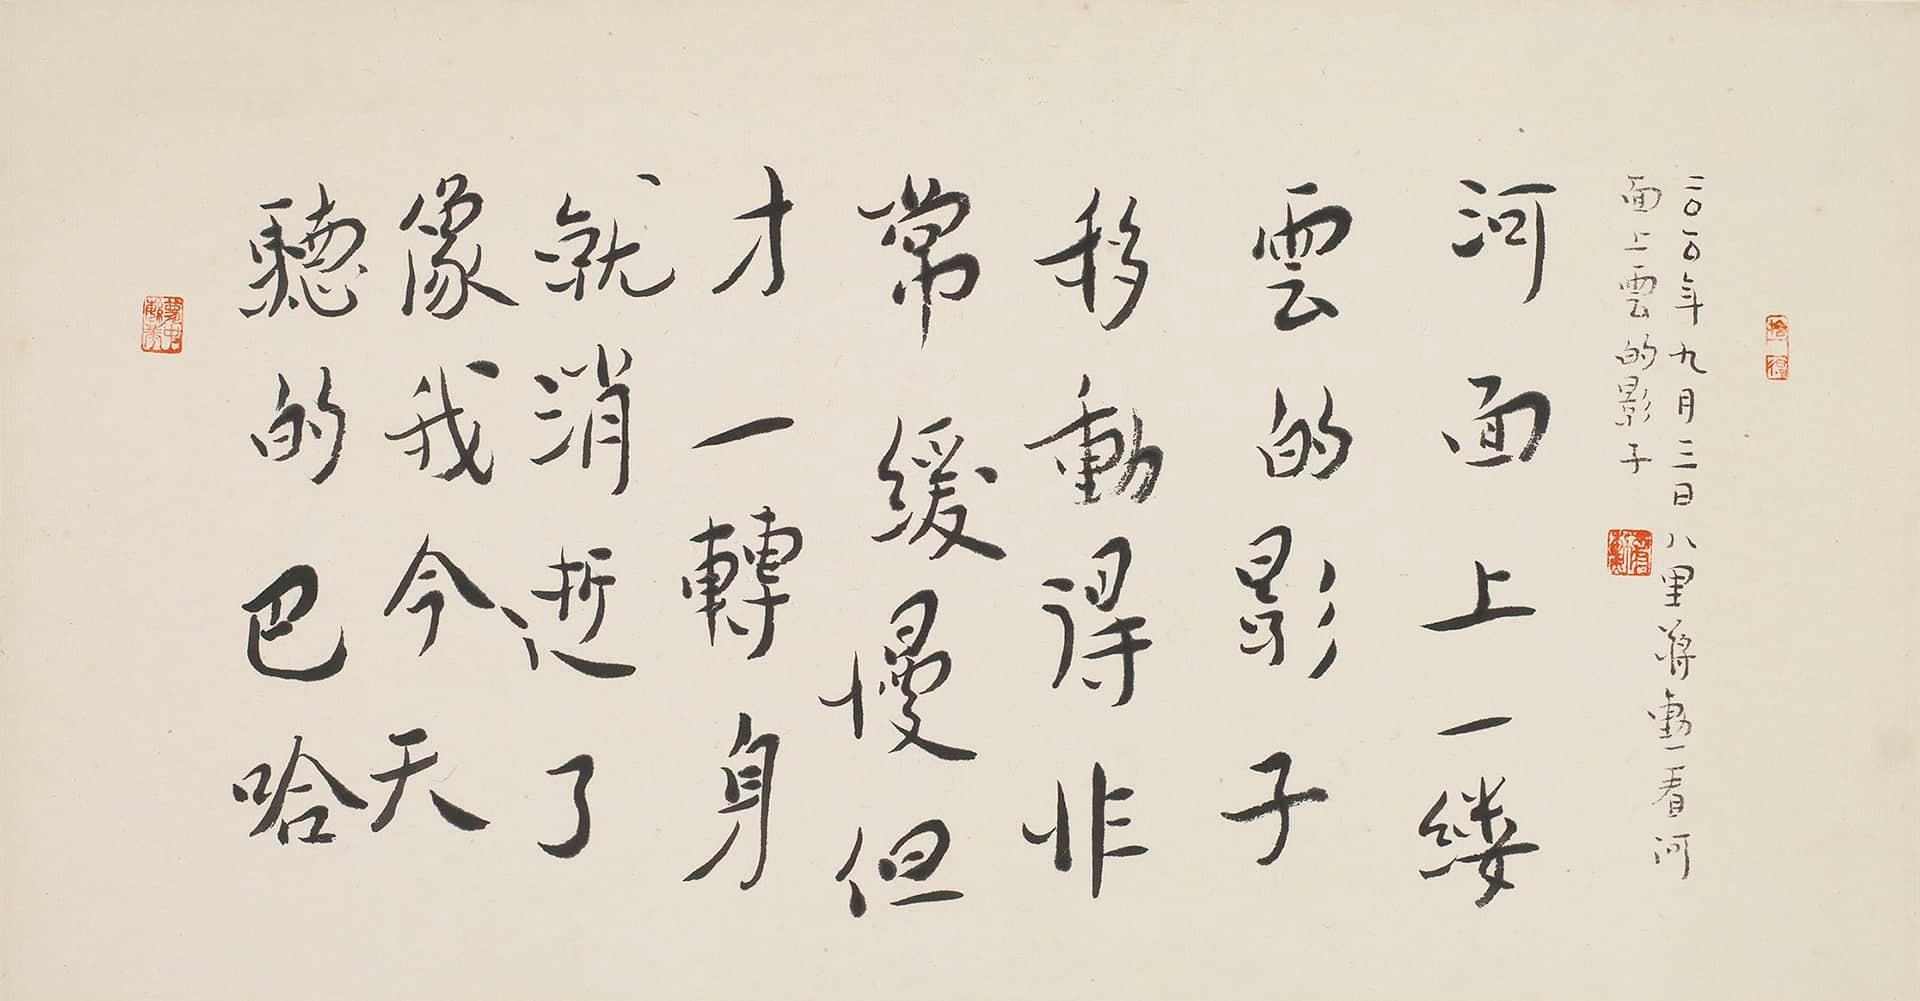 二〇一〇年九月三日八里蔣勳一看河
面上雲的影子
河面上一缕
雲的影子
移動得非
常緩慢但
才一轉身
就消逝了
像我今天
聽的巴哈
拾得